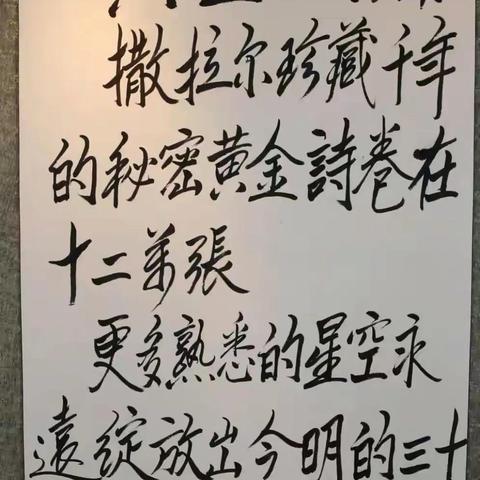 撒拉尔珍藏千年
的秘密黄金詩卷在
十二萬張
更多熟悉的星空永
遠綻放出今明的三十